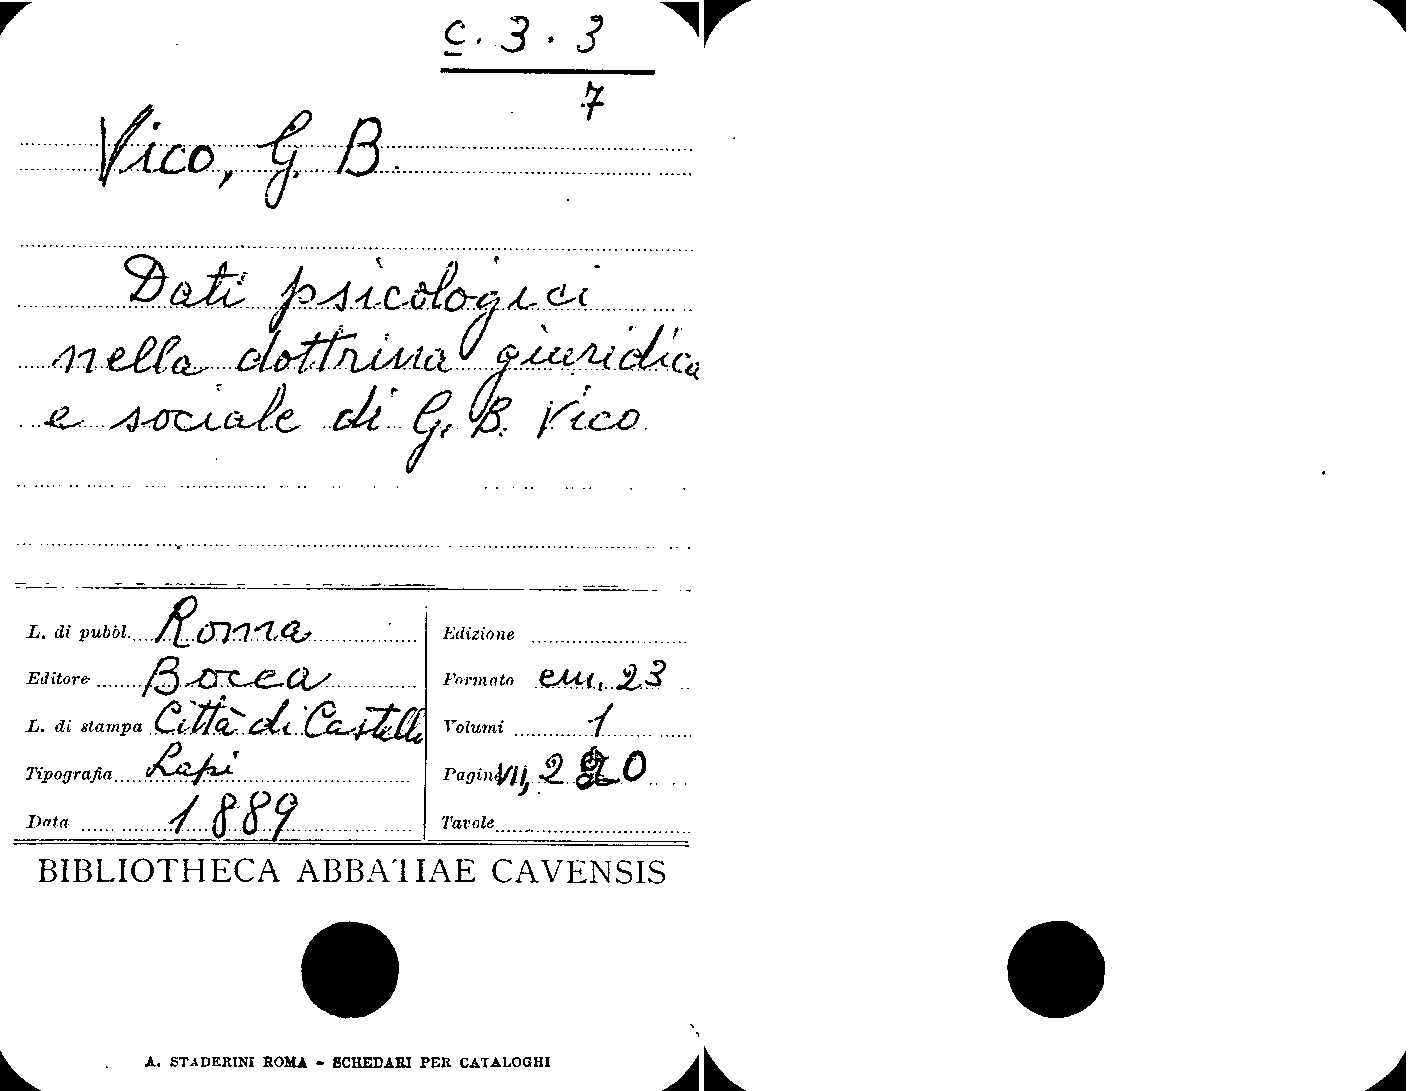 c. 3. 3
7
Vico, G. B.
Dati psicologici
nella dottrina giuridica
e sociale di G. B. Vico
L. di pubbl. Roma
Editore Bocca
L. di stampa Città di Castello
Tipografia Lapi
Data 1889
Edizione
Formato cm. 23
Volumi 1
Pagine VII, 2 0
Tavole
BIBLIOTHECA ABBATIAE CAVENSIS
A. STADERINI ROMA - SCHEDARI PER CATALOGHI